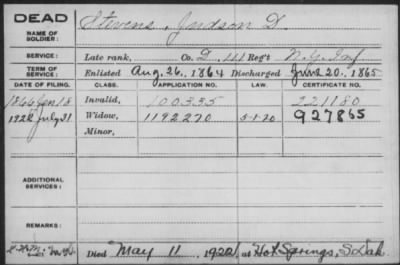 DEAD
NAME OF SOLDIER: Stevens, Judson D.
SERVICE: Late rank, Co. D, 111 Reg't N.Y. Inf
TERM OF SERVICE: Enlisted Aug. 26, 1864 Discharged June 20, 1865
DATE OF FILING. CLASS. APPLICATION NO. LAW. CERTIFICATE NO.
1866 Jan 18 Invalid, 100335 221180
1922 July 31 Widow, 1192270 5-1-20 927865
Minor,
ADDITIONAL SERVICES:
REMARKS:
Died May 11, 1922, at Hot Springs, S Dak